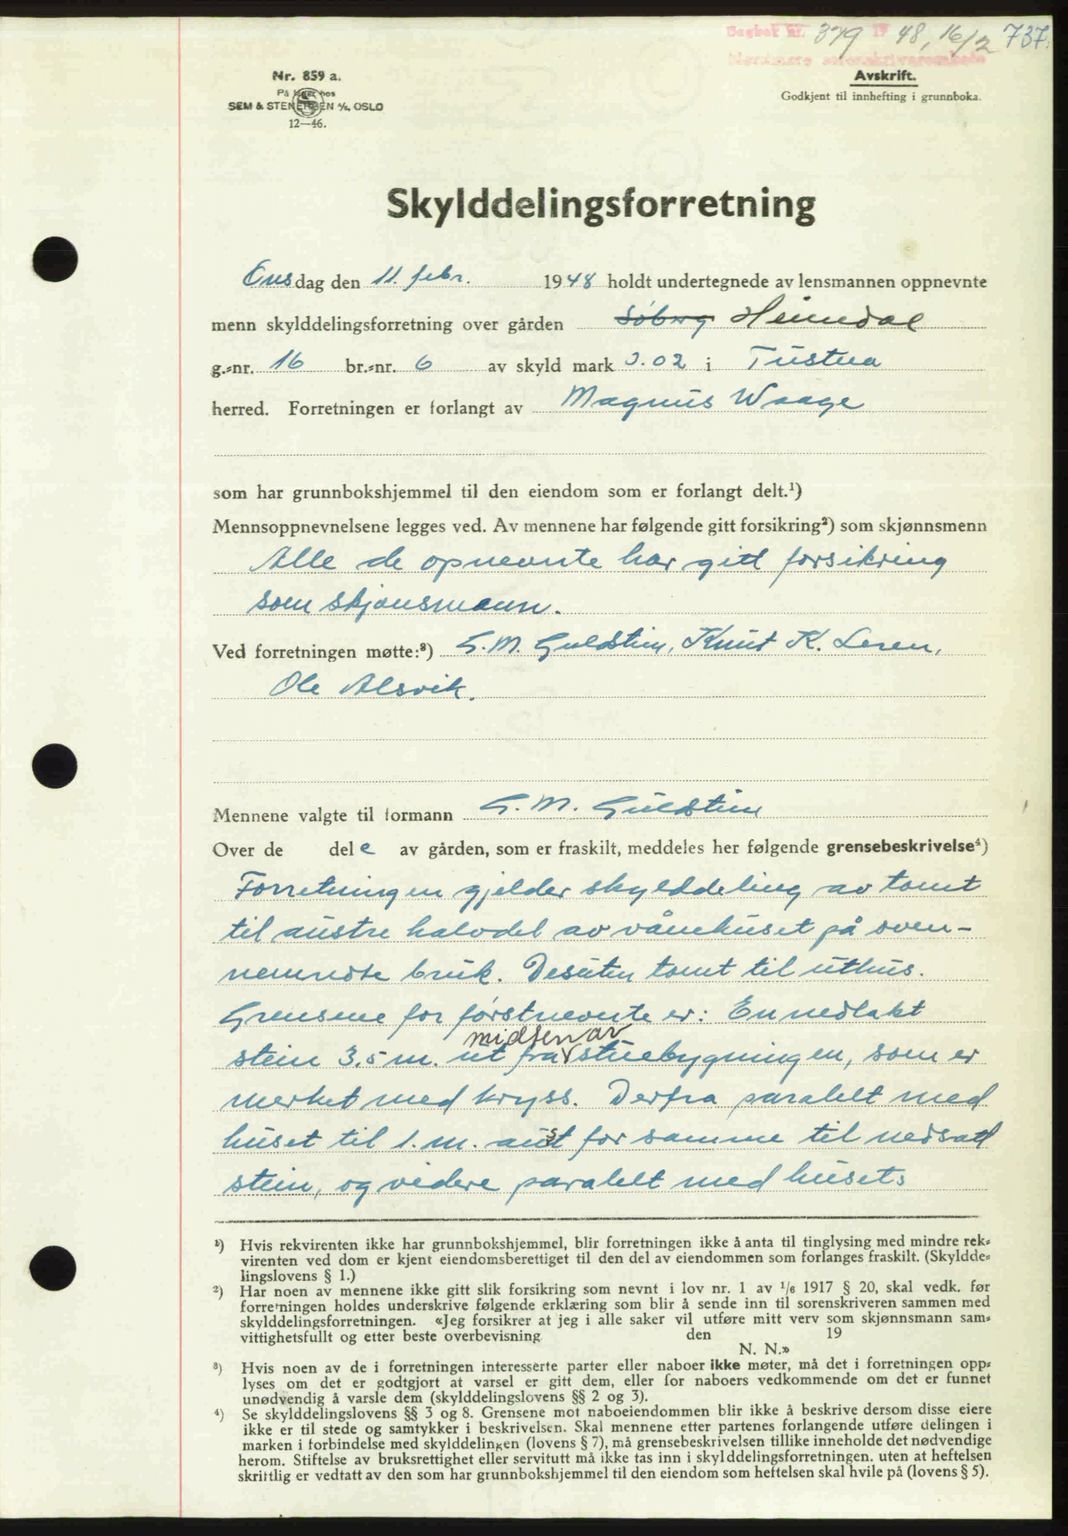 Dagbok nr. 379 19 48, 16/2 737.
Nordmøre sorenskriverembede
Nr. 859 a.
På lager hos
SEM & STENERSEN A/S, OSLO
12—46.
Avskrift.
Godkjent til innhefting i grunnboka.
Skylddelingsforretning
Onsdag den 11. febr. 1948 holdt undertegnede av lensmannen oppnevnte
menn skylddelingsforretning over gården Söberg Heimdal
g.-nr. 16 br.-nr. 6 av skyld mark 3.02 i Tustna
herred. Forretningen er forlangt av Magnus Waage
som har grunnbokshjemmel til den eiendom som er forlangt delt.¹)
Mennsoppnevnelsene legges ved. Av mennene har følgende gitt forsikring²) som skjønnsmenn
Alle de opnevnte har gitt forsikring
som skjønsmann.
Ved forretningen møtte:³) G. M. Guldstein, Knut K. Leren,
Ole Alsvik.
Mennene valgte til formann G. M. Guldstein
Over de dele av gården, som er fraskilt, meddeles her følgende grensebeskrivelse⁴)
Forretningen gjelder skylddeling av tomt
til austre halvdel av vånehuset på oven-
nemndte bruk. Desuten tomt til uthus.
Grensene for førstnevnte er: En nedlakt
midtsen av
stein 3.5 m. ut fra stuebygningen, som er
merket med kryss. Derfra paralelt med
huset til 1. m. aust for samme til nedsatt
stein, og videre paralelt med husets
¹) Hvis rekvirenten ikke har grunnbokshjemmel, blir forretningen ikke å anta til tinglysing med mindre rek-
virenten ved dom er kjent eiendomsberettiget til den del av eiendommen som forlanges fraskilt. (Skyldde-
lingslovens § 1.)
²) Har noen av mennene ikke gitt slik forsikring som nevnt i lov nr. 1 av 1/6 1917 § 20, skal vedk. før
forretningen holdes underskrive følgende erklæring som blir å sende inn til sorenskriveren sammen med
skylddelingsforretningen. «Jeg forsikrer at jeg i alle saker vil utføre mitt verv som skjønnsmann sam-
vittighetsfullt og etter beste overbevisning den 19
N. N.»
³) Hvis noen av de i forretningen interesserte parter eller naboer ikke møter, må det i forretningen opp-
lyses om det er godtgjort at varsel er gitt dem, eller for naboers vedkommende om det er funnet
unødvendig å varsle dem (skylddelingslovens §§ 2 og 3).
⁴) Se skylddelingslovens §§ 3 og 8. Grensene mot naboeiendommen blir ikke å beskrive dersom disse eiere
ikke er til stede og samtykker i beskrivelsen. Skal mennene etter partenes forlangende utføre delingen i
marken i forbindelse med skylddelingen (lovens § 7), må grensebeskrivelsen tillike inneholde det nødvendige
herom. Stiftelse av bruksrettighet eller servitutt må ikke tas inn i skylddelingsforretningen. uten at heftelsen
skriftlig er vedtatt av den som har grunnbokshjemmel til den eiendom som heftelsen skal hvile på (lovens § 5).